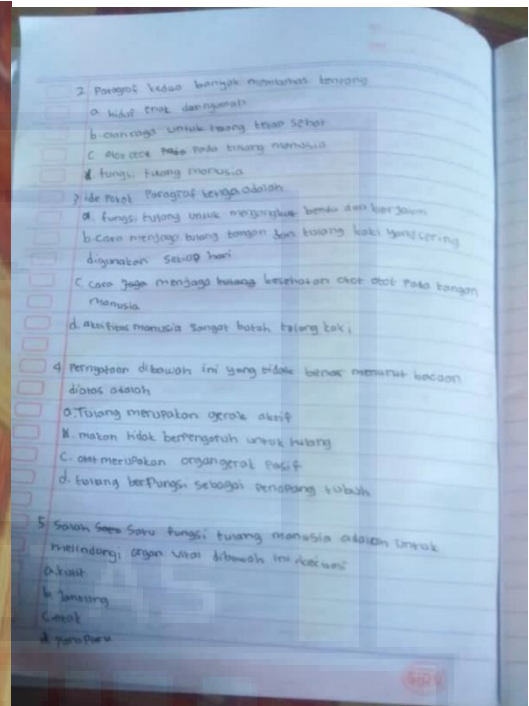 2 Paragraf kedua banyak membahas tentang
a hidup enak dan nyaman
b. olahraga untuk tulang tetap sehat
c otot otot pada tulang manusia
d fungsi tulang manusia
3 ide pokok Paragraf ketiga adalah
a. fungsi tulang untuk mengangkat benda dan berjalan
b. cara menjaga tulang tangan dan tulang kaki yang sering
digunakan setiap hari
c. cara menjaga tulang kesehatan otot otot pada tangan
manusia
d. aktifitas manusia sangat butuh tulang kaki
4 Pernyataan dibawah ini yang tidak benar menurut bacaan
diatas adalah
a. Tulang merupakan gerak aktif
b. makan tidak berpengaruh untuk tulang
c. otot merupakan organ gerak Pasif
d. tulang berfungsi sebagai penopang tubuh
5 Salah Satu fungsi tulang manusia adalah untuk
melindungi organ vital dibawah ini kecuali
a kulit
b. Jantung
c. otak
d paru paru